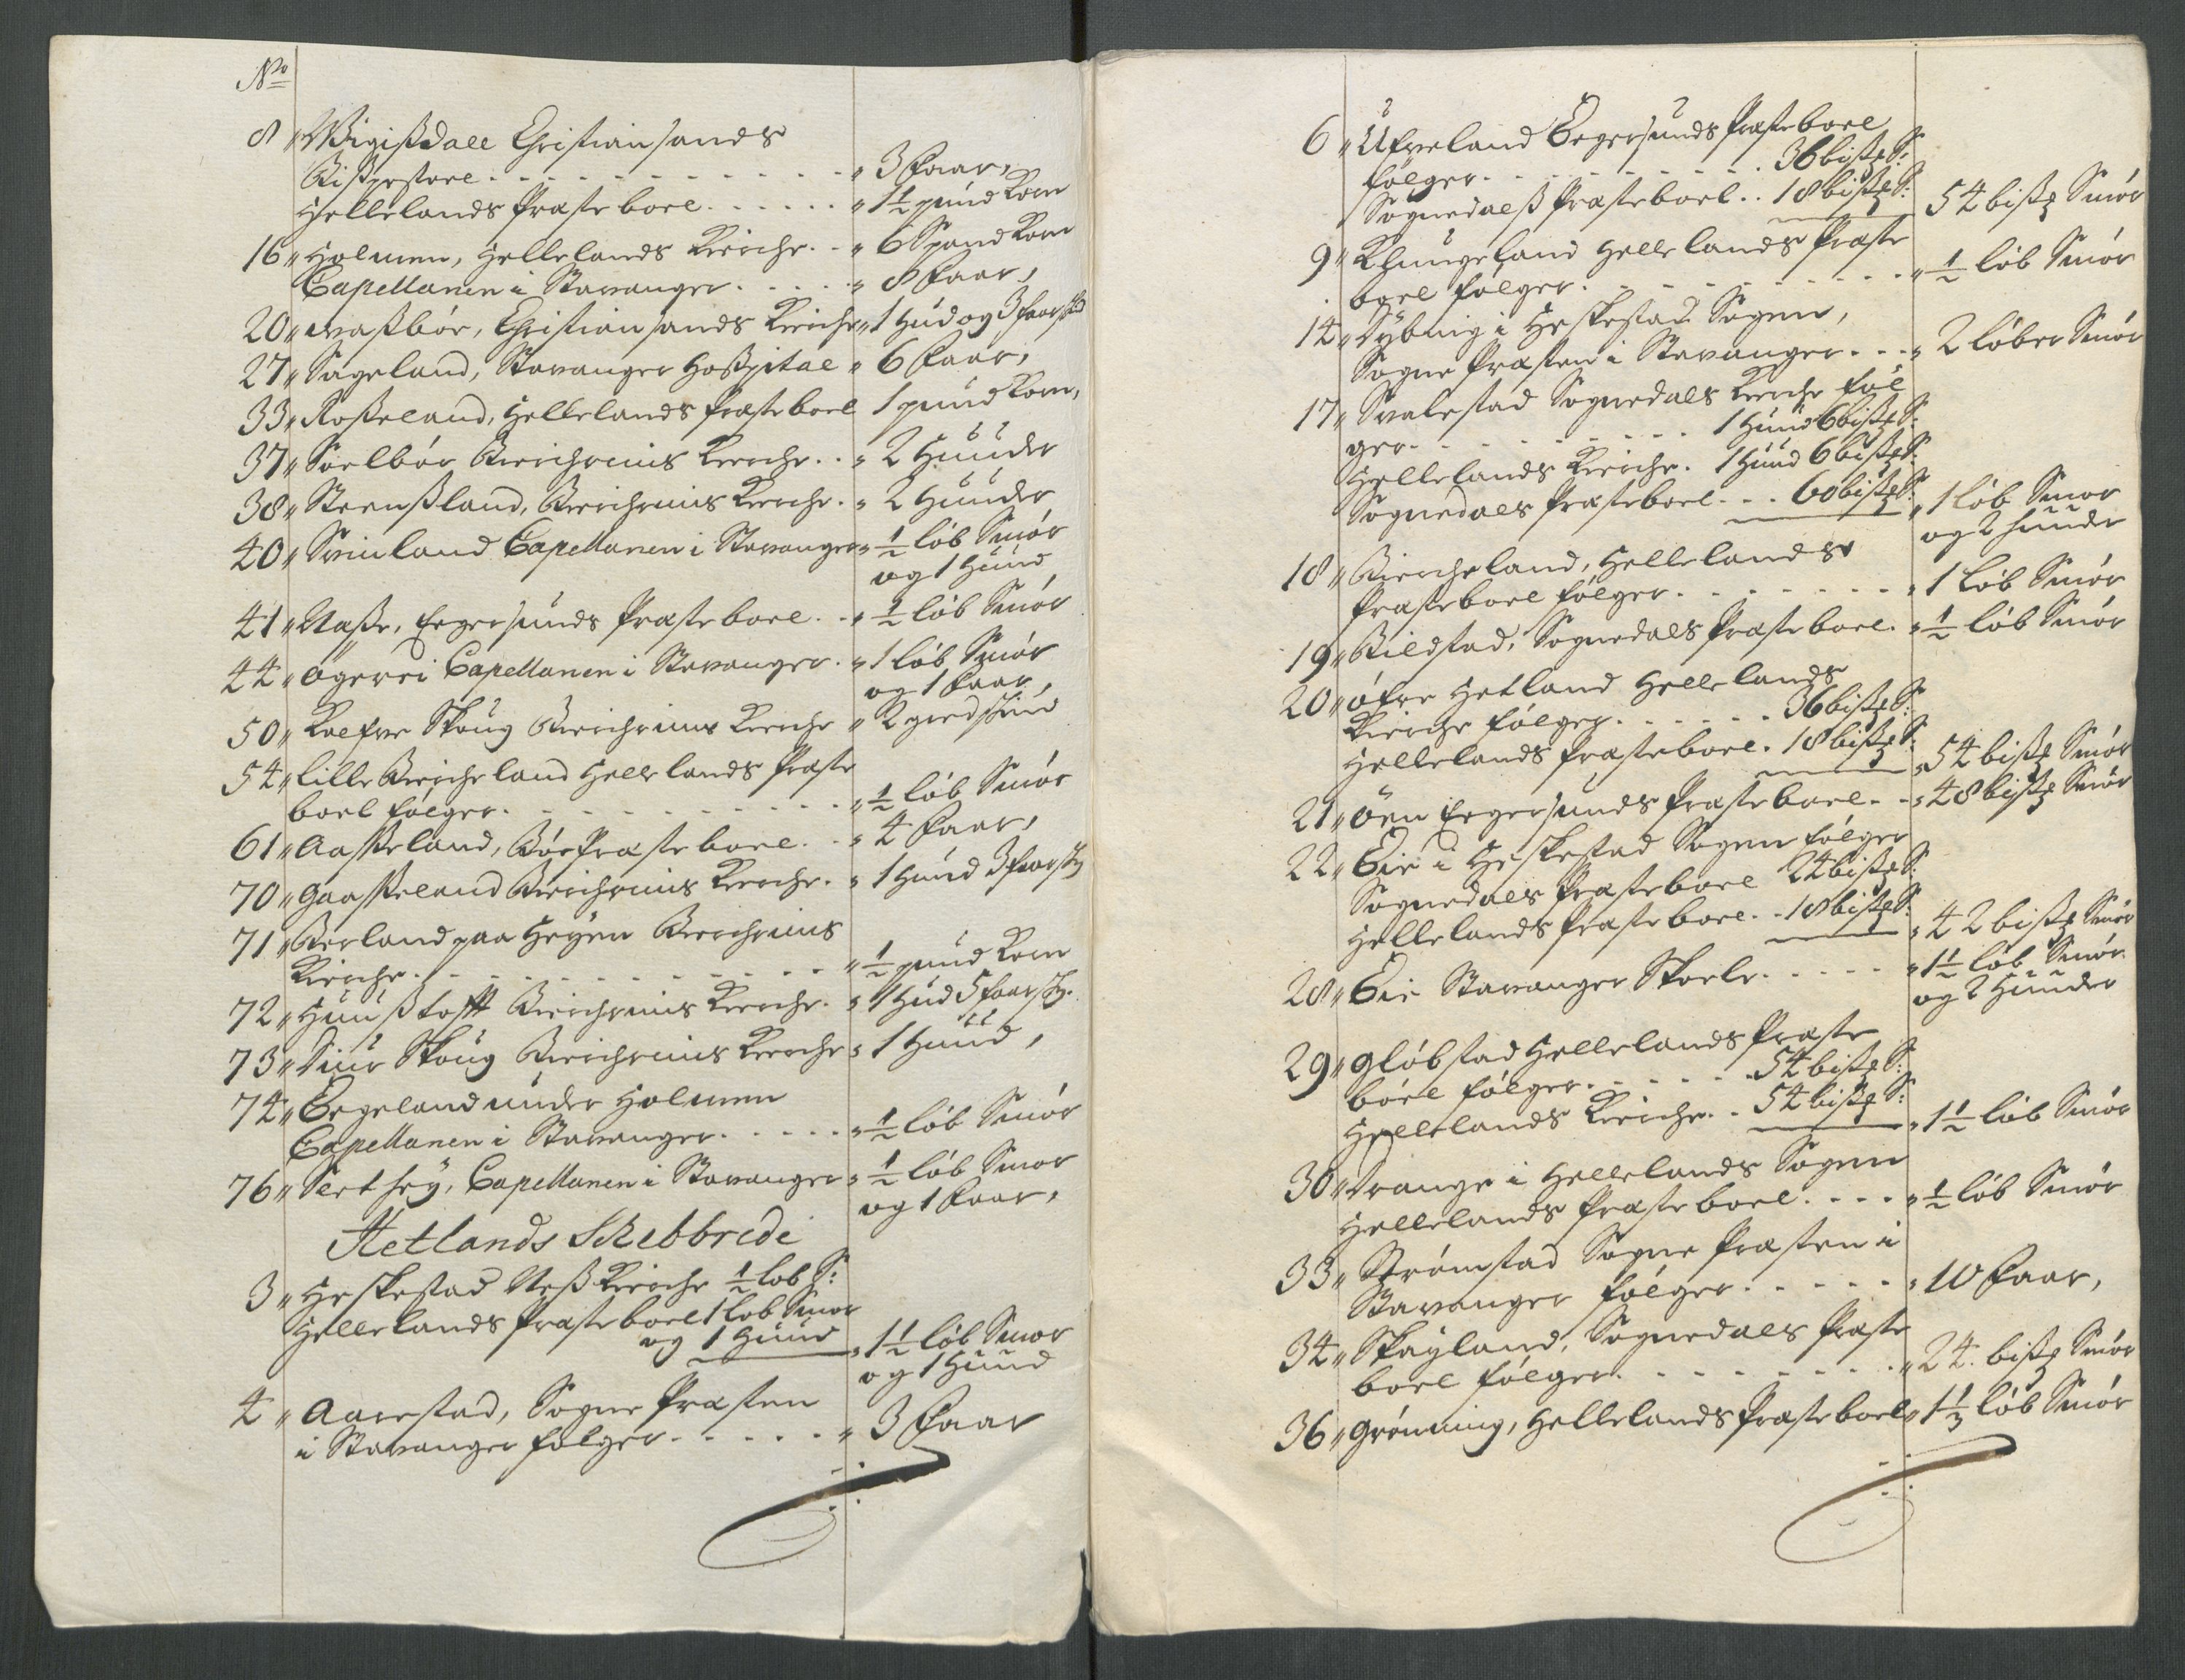 No
8 " Wigißdall Christiansands
Bißpestoel . . . . . . . . . . " 3 Faar,
Hellelands Præsteboel . . . . . . " 1½ pund Korn
16 " Holmen, Hellelands Kirche . . " 6 Spand Korn
Capellanen i Stavanger . . . . . " 8 Faar,
20 " Waßbøe, Christiansands Kirche " 1 Hud og 3 faarskind
27 " Sageland, Stavanger Hoßpital " 6 Faar,
33 " Roßeland, Hellelands Præsteboel 1 pund Korn,
37 " Soelbør Bierchreims Kirche . . " 2 Huuder
38 " Steenßland, Bierchreims Kirche . " 2 Huuder
40 " Svinland Capellanen i Stavanger " ½ løb Smør
og 1 Huud
41 " Naße, Eegersunds Præsteboel . . " ½ løb Smør
44 " Ögerei Capellanen i Stavanger . " 1 løb Smør
og 1 Faar,
50 " Koefve Skoug Bierchreims Kirche " 2 giedskind
54 " Lille Bircheland Hellelands Præste
boel følger . . . . . . . . . . " ½ løb Smør
61 " Aaßeland, Bøe Præsteboel . . " 4 Faar,
70 " Gaaßeland Bierchreims Kirche . " 1 Huud 3 faarsk
71 " Berland paa Heyen Bierchreims
Kirche . . . . . . . . . . . " ½ pund Korn
72 " Huußtofft Bierchreims Kirche . " 1 Hud 5 faarsk.
73 " Siur Skoug Bierchreims Kirche " 1 Huud,
74 " Eegeland under Holmen
Capellanen i Stavanger . . . . . " ½ løb Smør
76 " Slethey, Capellanen i Stavanger " ½ løb Smør
og 1 Faar,
Hetlands Skibbrede
3 " Heskestad Neß Kirche ½ løb S:
Hellelands Præsteboel 1 løb Smør
og 1 Huud " 1½ løb Smør
og 1 Huud
4 " Aarestad, Sogne Præsten
i Stavanger følger . . . . . " 3 Faar
6 " Ufveland Eegersunds Præsteboel
følger . . . . . . . . . . 36 bißp S:
Sognedalß Præsteboel . . 18 bißp S: 54 bißp Smør
9 " Klungeland Hellelands Præste
boel følger . . . . . . . . . " ½ løb Smør
14 " Nybnig i Heskestad Sogen,
Sogne Præsten i Stavanger . . . " 2 løber Smør
17 " Svalestad Sognedals Kirche føl
ger . . . . . . . . . . 1 Huud 6 bißp S:
Hellelands Kirche . 1 Huud 6 bißp S:
Sognedals Præsteboel . . . 60 bißp S: " 1 løb Smør
og 2 huuder
18 " Bircheland, Hellelands
Præsteboel følger . . . . . . . . " 1 løb Smør
19 " Bildstad, Sognedals Præsteboel . " ½ løb Smør
20 " Øfre Hetland Hellelands
Kirche følger . . . . . . 36 bißp S:
Hellelands Præsteboel . 18 bißp S: " 54 bißp Smør
21 " Øen Eegersunds Præsteboel . . " 48 bißp Smør
22 " Eie i Heskestad Sogen følger
Sognedals Præsteboel 24 bißp S:
Hellelands Præsteboel . . 18 bißp S: " 42 bißp Smør
28 " Eie Stavanger Skoele . . . . . " 1½ løb Smør
og 2 Huuder
29 " Gløbstad Hellelands Præste
boel følger . . . . . . 54 bißp S:
Hellelands Kirche . . 54 bißp S: " 1½ løb Smør
30 " Drange i Hellelands Sogen
Hellelands Præsteboel . . . . " ½ løb Smør
33 " Strømstad Sogne Præsten i
Stavanger følger . . . . . " 10 Faar,
34 " Skayland, Sognedals Præste
boel følger . . . . . . . . " 24 . bißp Smør
36 " Grønning, Hellelands Præsteboel " 1⅓ løb Smør